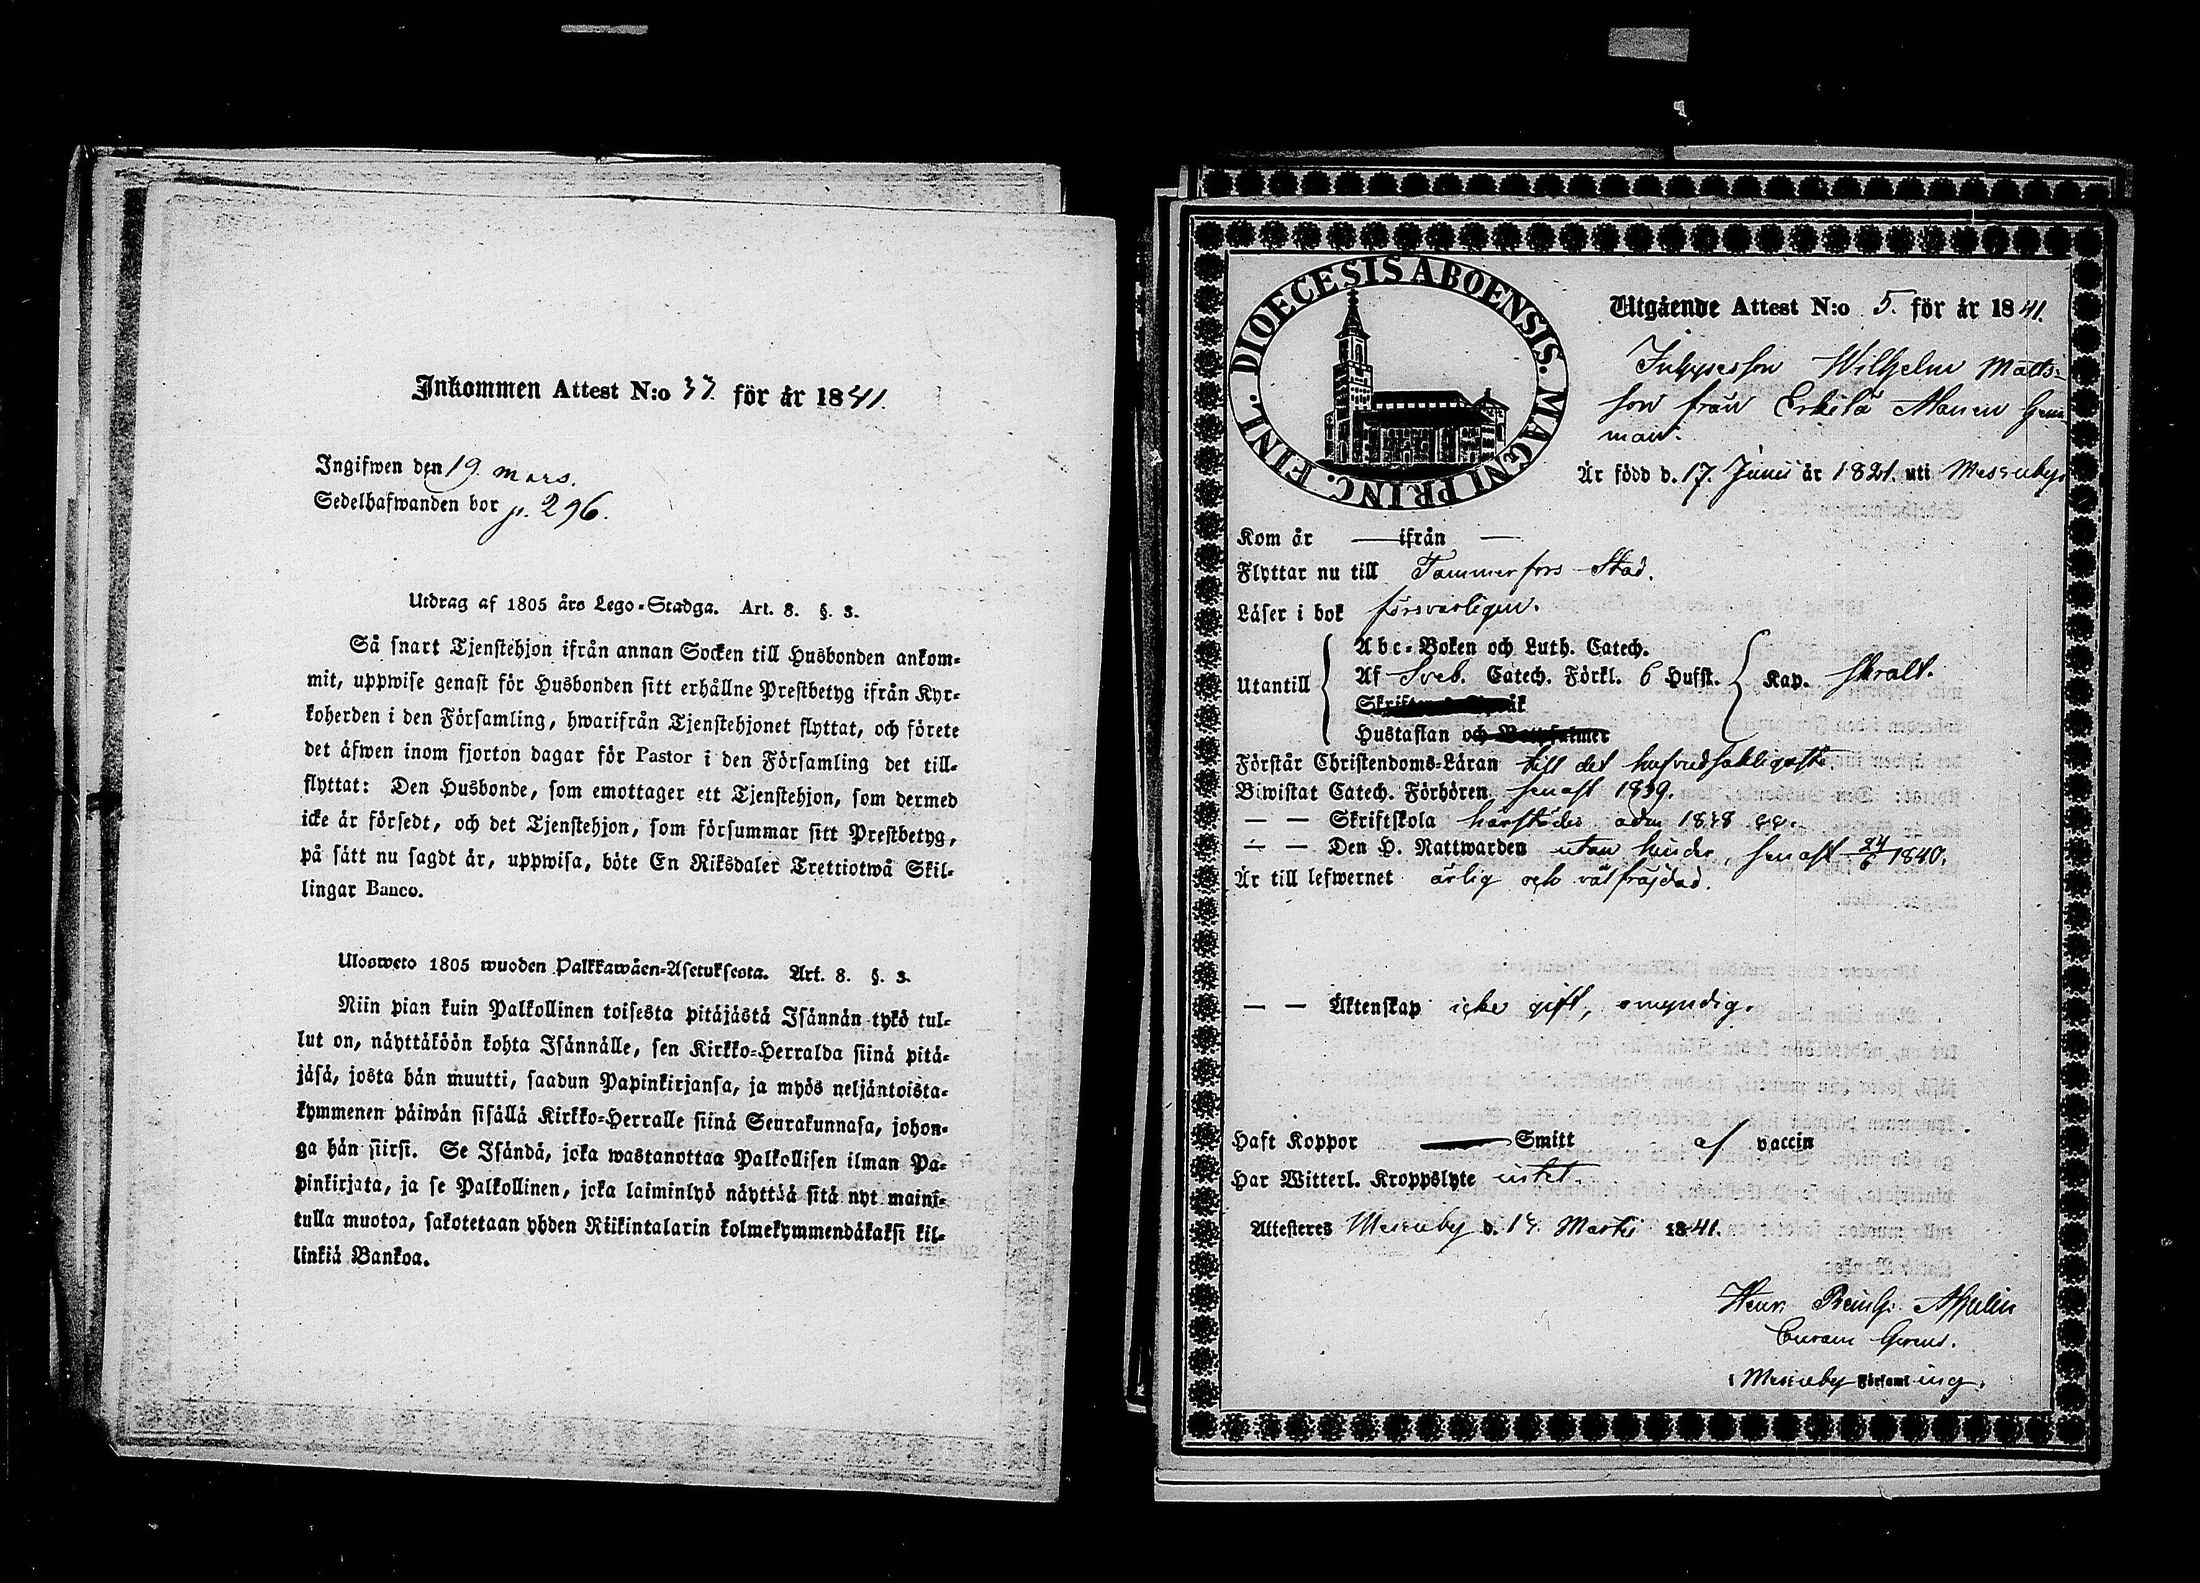 Inkommen Attest N:o 37. för år 1841.
Ingifwen den 19. mars.
Sedelhafwanden bor p. 296.
Utdrag af 1805 års Lego-Stadga. Art. 8. §. 3.
Så snart Tjenstehjon ifrån annan Socken till Husbonden ankom-
mit, uppwise genast för Husbonden sitt erhållne Prestbetyg ifrån Kyr-
koherden i den Församling, hwarifrån Tjenstehjonet flyttat, och förete
det äfwen inom fjorton dagar för Pastor i den Församling det till-
flyttat: Den Husbonde, som emottager ett Tjenstehjon, som dermed
icke är försedt, och det Tjenstehjon, som försummar sitt Prestbetyg,
på sätt nu sagdt är, uppwisa, böte En Riksdaler Trettiotwå Skil-
lingar Banco.
Ulosweto 1805 wuoden Palkkawäen-Asetuksesta. Art. 8. §. 3.
Niin pian kuin Palkollinen toisesta pitäjästä Isännän tykö tul-
lut on, näyttäköön kohta Isännälle, sen Kirkko-Herralda siinä pitä-
jäsä, josta hän muutti, saadun Papinkirjansa, ja myös neljäntoista-
kymmenen päiwän sisällä Kirkko-Herralle siinä Seurakunnasa, johon-
ga hän siirsi. Se Isändä, joka wastanottaa Palkollisen ilman Pa-
pinkirjata, ja se Palkollinen, joka laiminlyö näyttää sitä nyt maini-
tulla muotoa, sakotetaan yhden Riikintalarin kolmekymmendäkaksi kil-
linkiä Bankoa.
DIOECESIS ABOENSIS. MAGNI PRINC. FINL.
Utgående Attest N:o 5. för år 1841.
Wilhelm Matts-
son från Erkilä
man.
Är född d. 17. Junii år 1821. uti Messuby
Kom år — ifrån —
Flyttar nu till Tammerfors Stad.
Läser i bok försvarligen.
Utantill
Abc-Boken och Luth. Catech.
Af Sveb. Catech. Förkl. 6 Hufst. Kap. svalt.
Hustaflan och
Förstår Christendoms-Läran till det hufvudsakligaste.
Biwistat Catech. Förhören senast 1839.
— — Skriftskola härstädes adm 1838
— — Den H. Nattwarden utan hinder, senast 24/6 1840.
Är till lefwernet ärlig och välfräjdad.
— — Äktenskap icke gift, omyndig.
Haft Koppor — Smitt af vaccin
Har Witterl. Kroppslyte intet.
Attesteres Messuby d. Martii 1841.
Henr. Reinh. Appelin
Curam Gerens.
i Messuby Församling.